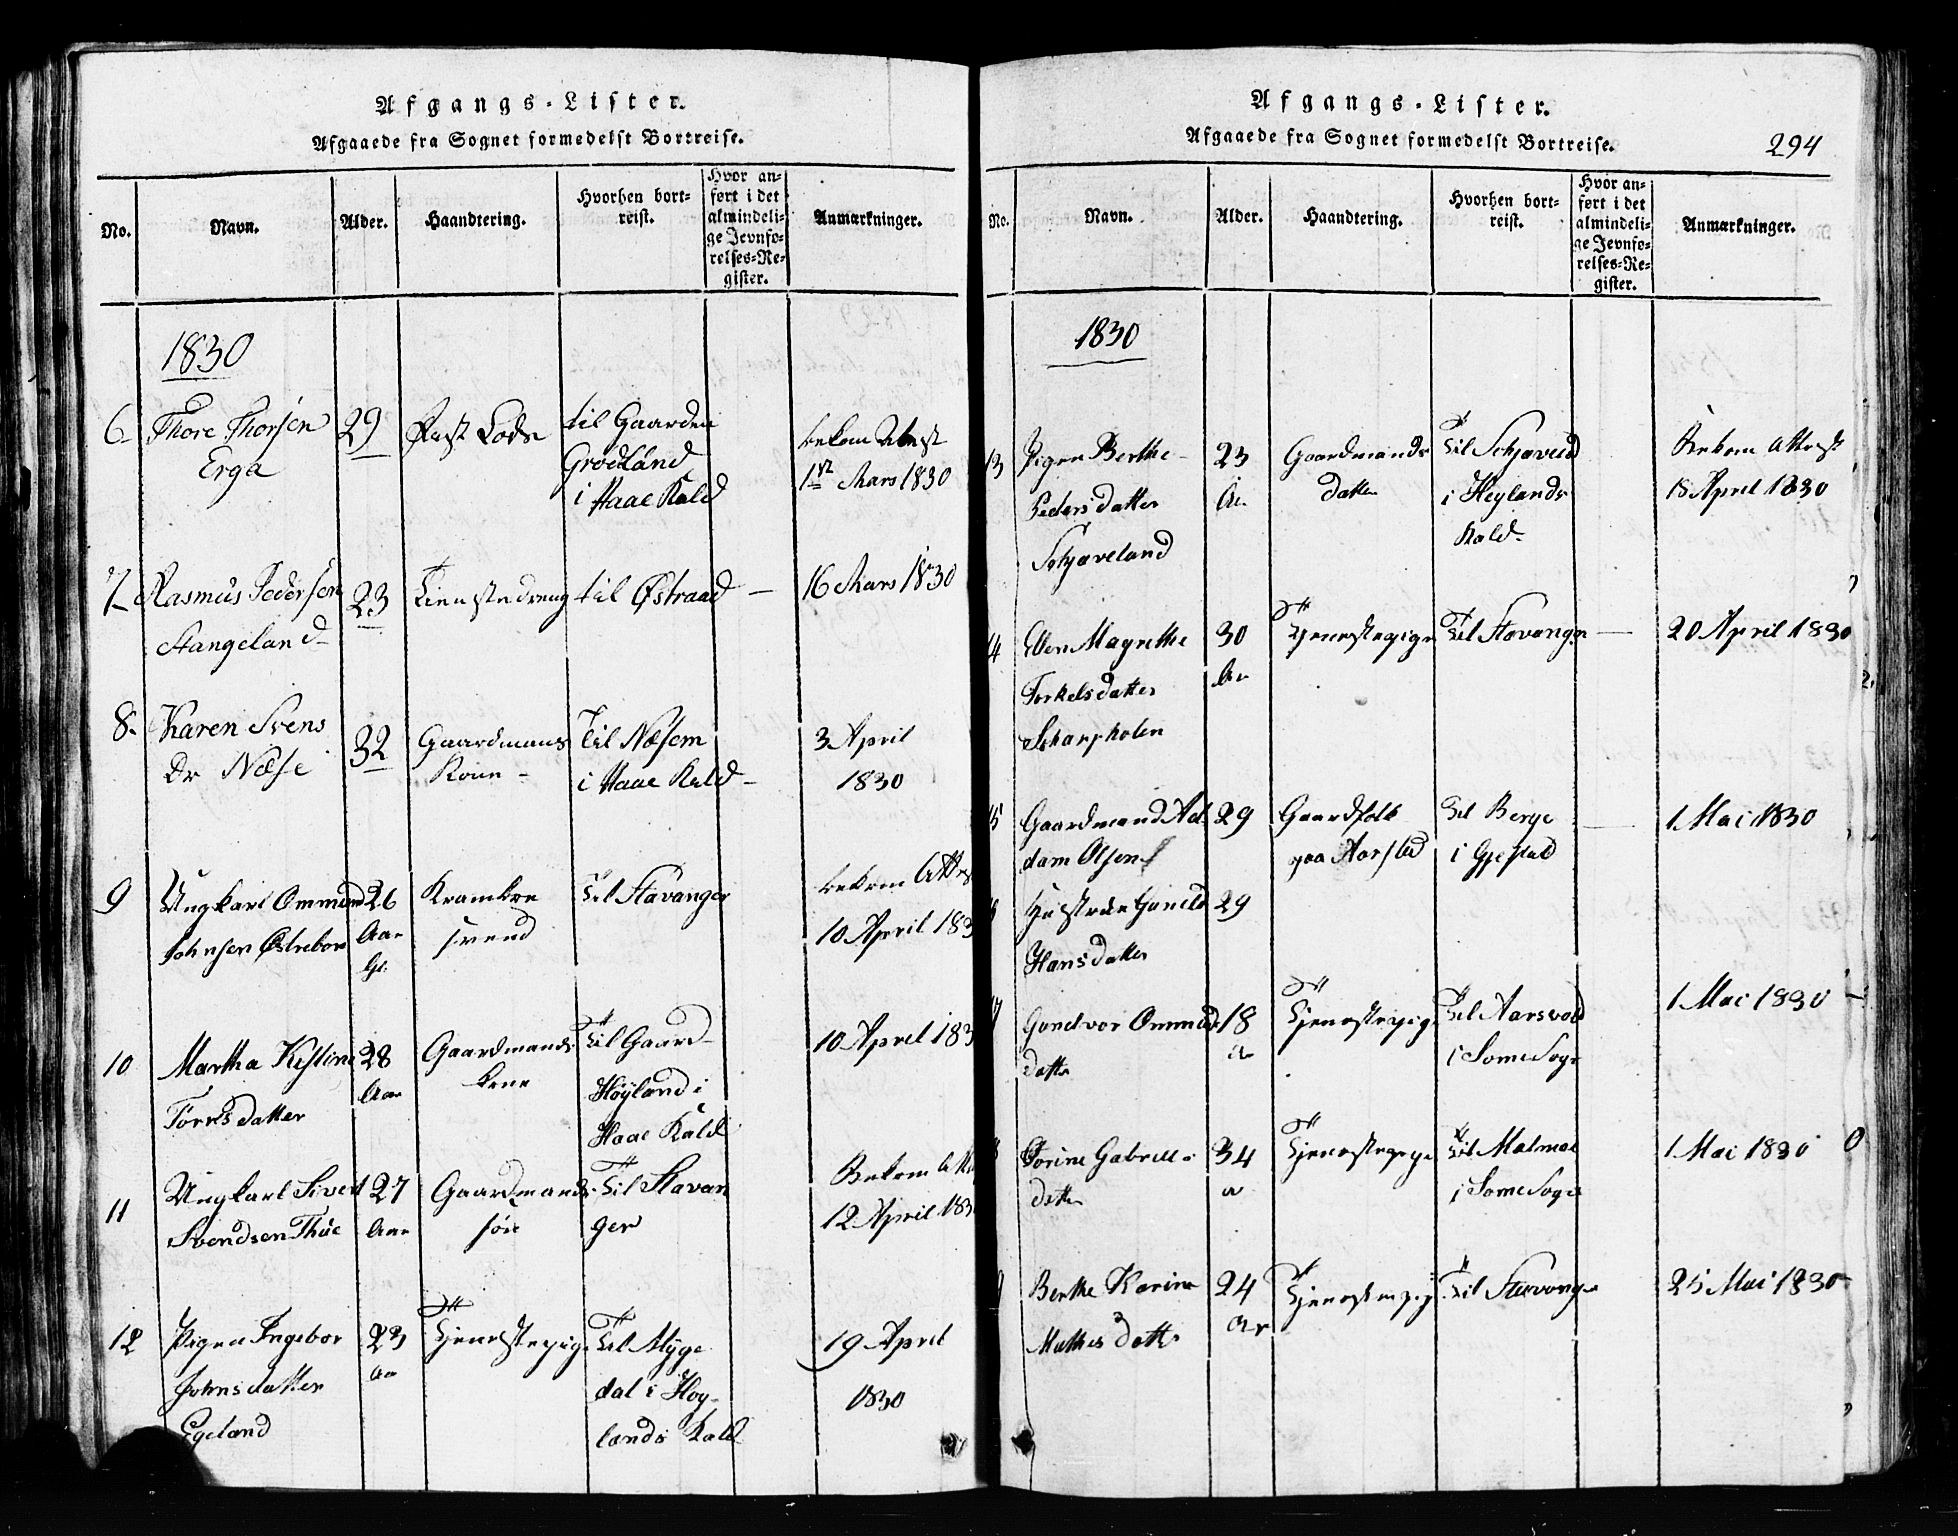 Afgangs-Lister.
Afgaaede fra Sognet formedelst Bortreise.
No.
Navn.
Alder.
Haandtering.
Hvorhen bort-
reist.
Hvor an-
ført i det
almindeli-
ge Jevnfø-
relses-Re-
gister.
Anmærkninger.
1830
6
Thore Thorsen
Erga
29
Lods
til Gaarden
Grødland
i Haae Kald
bekom Attest
1ste Mars 1830
7
Rasmus Pedersen
Stangeland
23
Tienstedreng
til Østraad
16 Mars 1830
8
Karen Svens
Dr Næse
32
Gaardmans
Kone
Til Næsem
i Haae Kald
3 April
1830
9
Ungkarl Ommund
Johnsen Østrebøe
26
Aar
Gl
svend
Til Stavanger
bekom Attes
10 April 183
10
Martha Kistine
Torresdatter
28
Aar
Gaardmands
kone
Til Gaard
Høyland i
Haae Kald
10 April 183
11
Ungkarl Sivert
Svendsen Thue
27
Aar
Gaardmands
søn
Til Stavan
ger
Bekom Att
12 April 183
12
Pigen Ingebor
Johnsdatter
Egeland
23
aar
Tjenestepige
Til Alyge
dal i Høy-
lands Kald
19 April
1830
Afgangs-Lister.
Afgaaede fra Sognet formedelst Bortreise.
294
No.
Navn.
Alder.
Haandtering.
Hvorhen bort-
reist.
Hvor an-
ført i det
almindeli-
ge Jevnfø-
relses-Re-
gister.
Anmærkninger.
1830
13
Pigen Berthe
Pedersdatter
Schjæveland
23
Aar
Gaardmands
datter
Til Schjæveld
i Heylands
Kald
Bekom Attest
18 April 1830
4
Ellen Magrethe
Torkelsdatter
Scharpholen
30
Aar
Tjenestepige
Til Stavanger
20 April 1830
15
Gaardmand Ad
dam Olsen
29
Gaardfolk
paa Aarstad
Til Berge
i Gjestad
1 Mai 1830
Hustrue Gunild
Hansdatter
29
Gundvor Ommunds
datter
18
Tjenestepige
Til Aarsvold
i Some Sogn
1 Mai 1830
Torine Gabriels
datter
34
Tjenestepige
Til Malmei
i Some Sogn
1 Mai 1830
Berthe Karine
Mathisdatter
24
Aar
Tjenestepige
Til Stavanger
25 Mai 1830